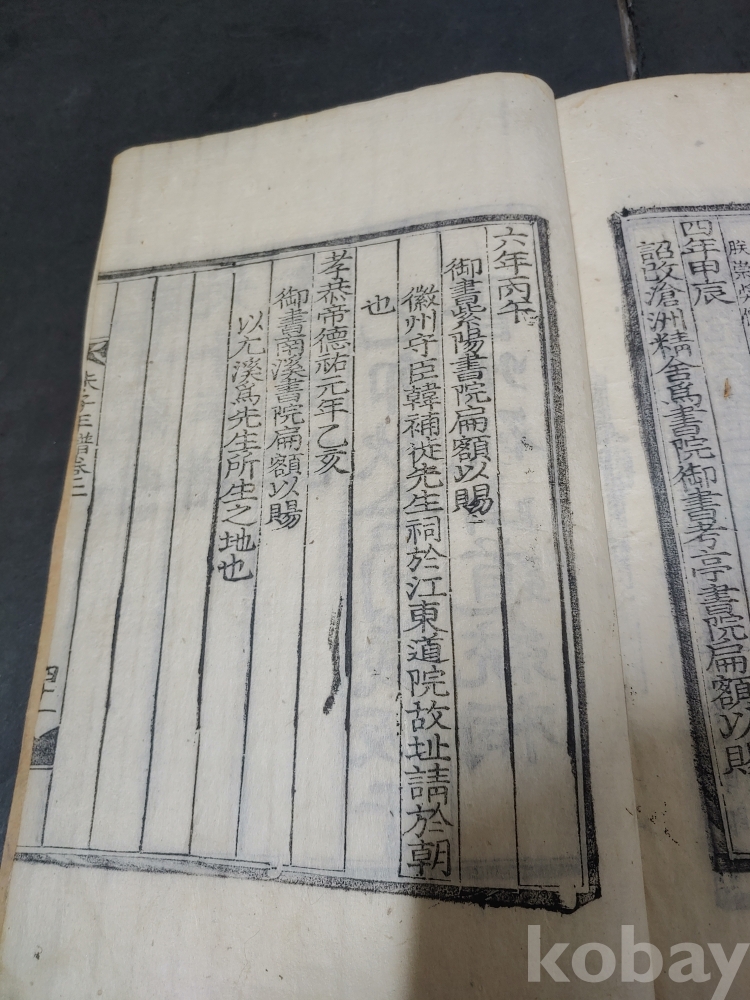 四年甲辰
詔改滄洲精舍爲書院御書考亭書院扁額以賜
六年丙午
御書紫陽書院扁額以賜
徽州守臣韓補徙先生祠於江東道院故址請於朝
也
孝恭帝德祐元年乙亥
御書南溪書院扁額以賜
以尤溪爲先生所生之地也
朱子年譜卷二
四十一
kobay